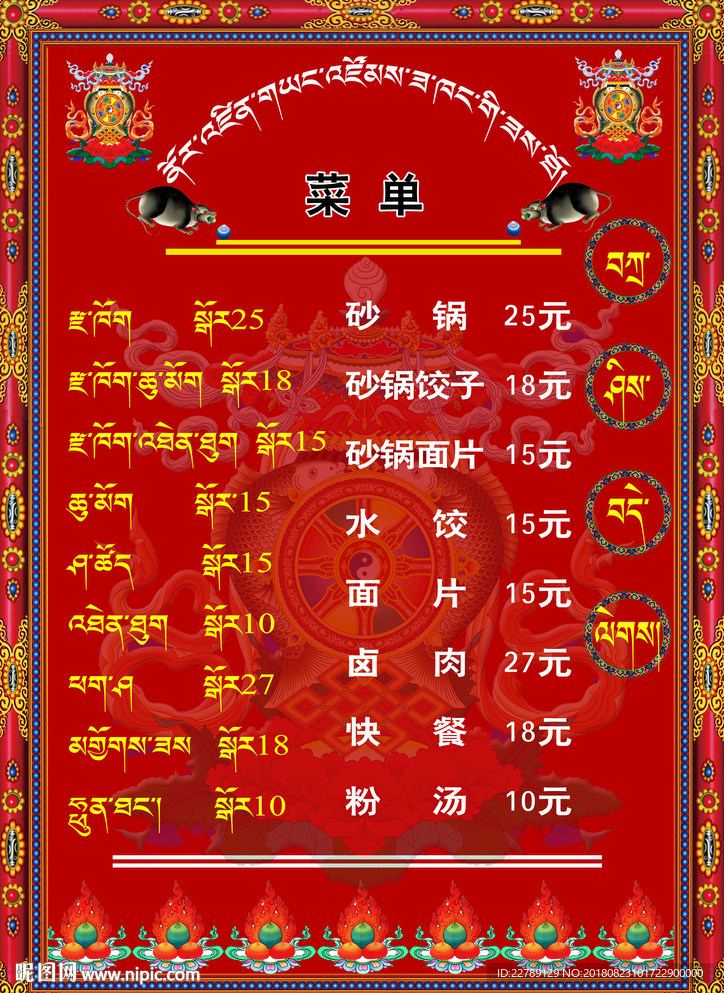 ནོར་འཛིན་གཡང་འཛོམས་ཟ་ཁང་གི་ཟས་ཐོ།
菜 单
བཀྲ་
ཤིས་
བདེ་
ལེགས།
རྫ་ཁོག སྒོར25
རྫ་ཁོག་ཆུ་མོག སྒོར་18
རྫ་ཁོག་འཐེན་ཐུག སྒོར་15
ཆུ་མོག སྒོར་15
ཤ་ཚོད སྒོར15
འཐེན་ཐུག སྒོར10
ཕག་ཤ སྒོར27
མགྱོགས་ཟས སྒོར18
ཧྥུན་ཐང་། སྒོར10
砂 锅 25元
砂锅饺子 18元
砂锅面片 15元
水 饺 15元
面 片 15元
卤 肉 27元
快 餐 18元
粉 汤 10元
昵图网 www.nipic.com
ID:22789129 NO:20180823101722900000